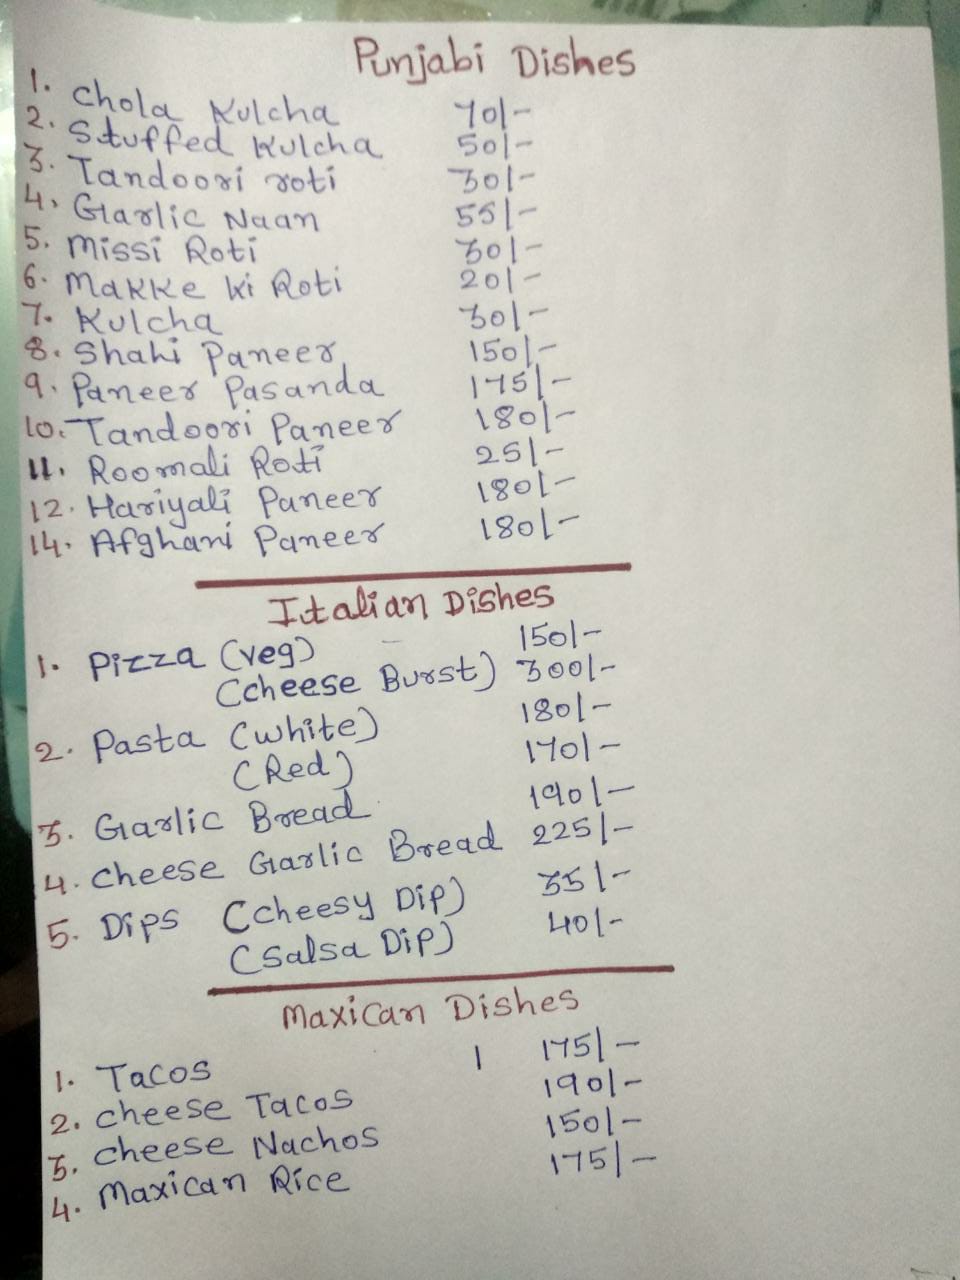 Punjabi Dishes
1. Chola Kulcha 70/-
2. Stuffed Kulcha 50/-
3. Tandoori roti 30/-
4. Garlic Naan 55/-
5. Missi Roti 30/-
6. Makke ki Roti 20/-
7. Kulcha 30/-
8. Shahi Paneer 150/-
9. Paneer Pasanda 175/-
10. Tandoori Paneer 180/-
11. Roomali Roti 25/-
12. Hariyali Paneer 180/-
14. Afghani Paneer 180/-
Italian Dishes
1. Pizza (veg) 150/-
(cheese Burst) 300/-
2. Pasta (white) 180/-
(Red) 170/-
3. Garlic Bread 190/-
4. cheese Garlic Bread 225/-
5. Dips (cheesy Dip) 35/-
(Salsa Dip) 40/-
Maxican Dishes
1. Tacos 175/-
2. cheese Tacos 190/-
3. cheese Nachos 150/-
4. Maxican Rice 175/-